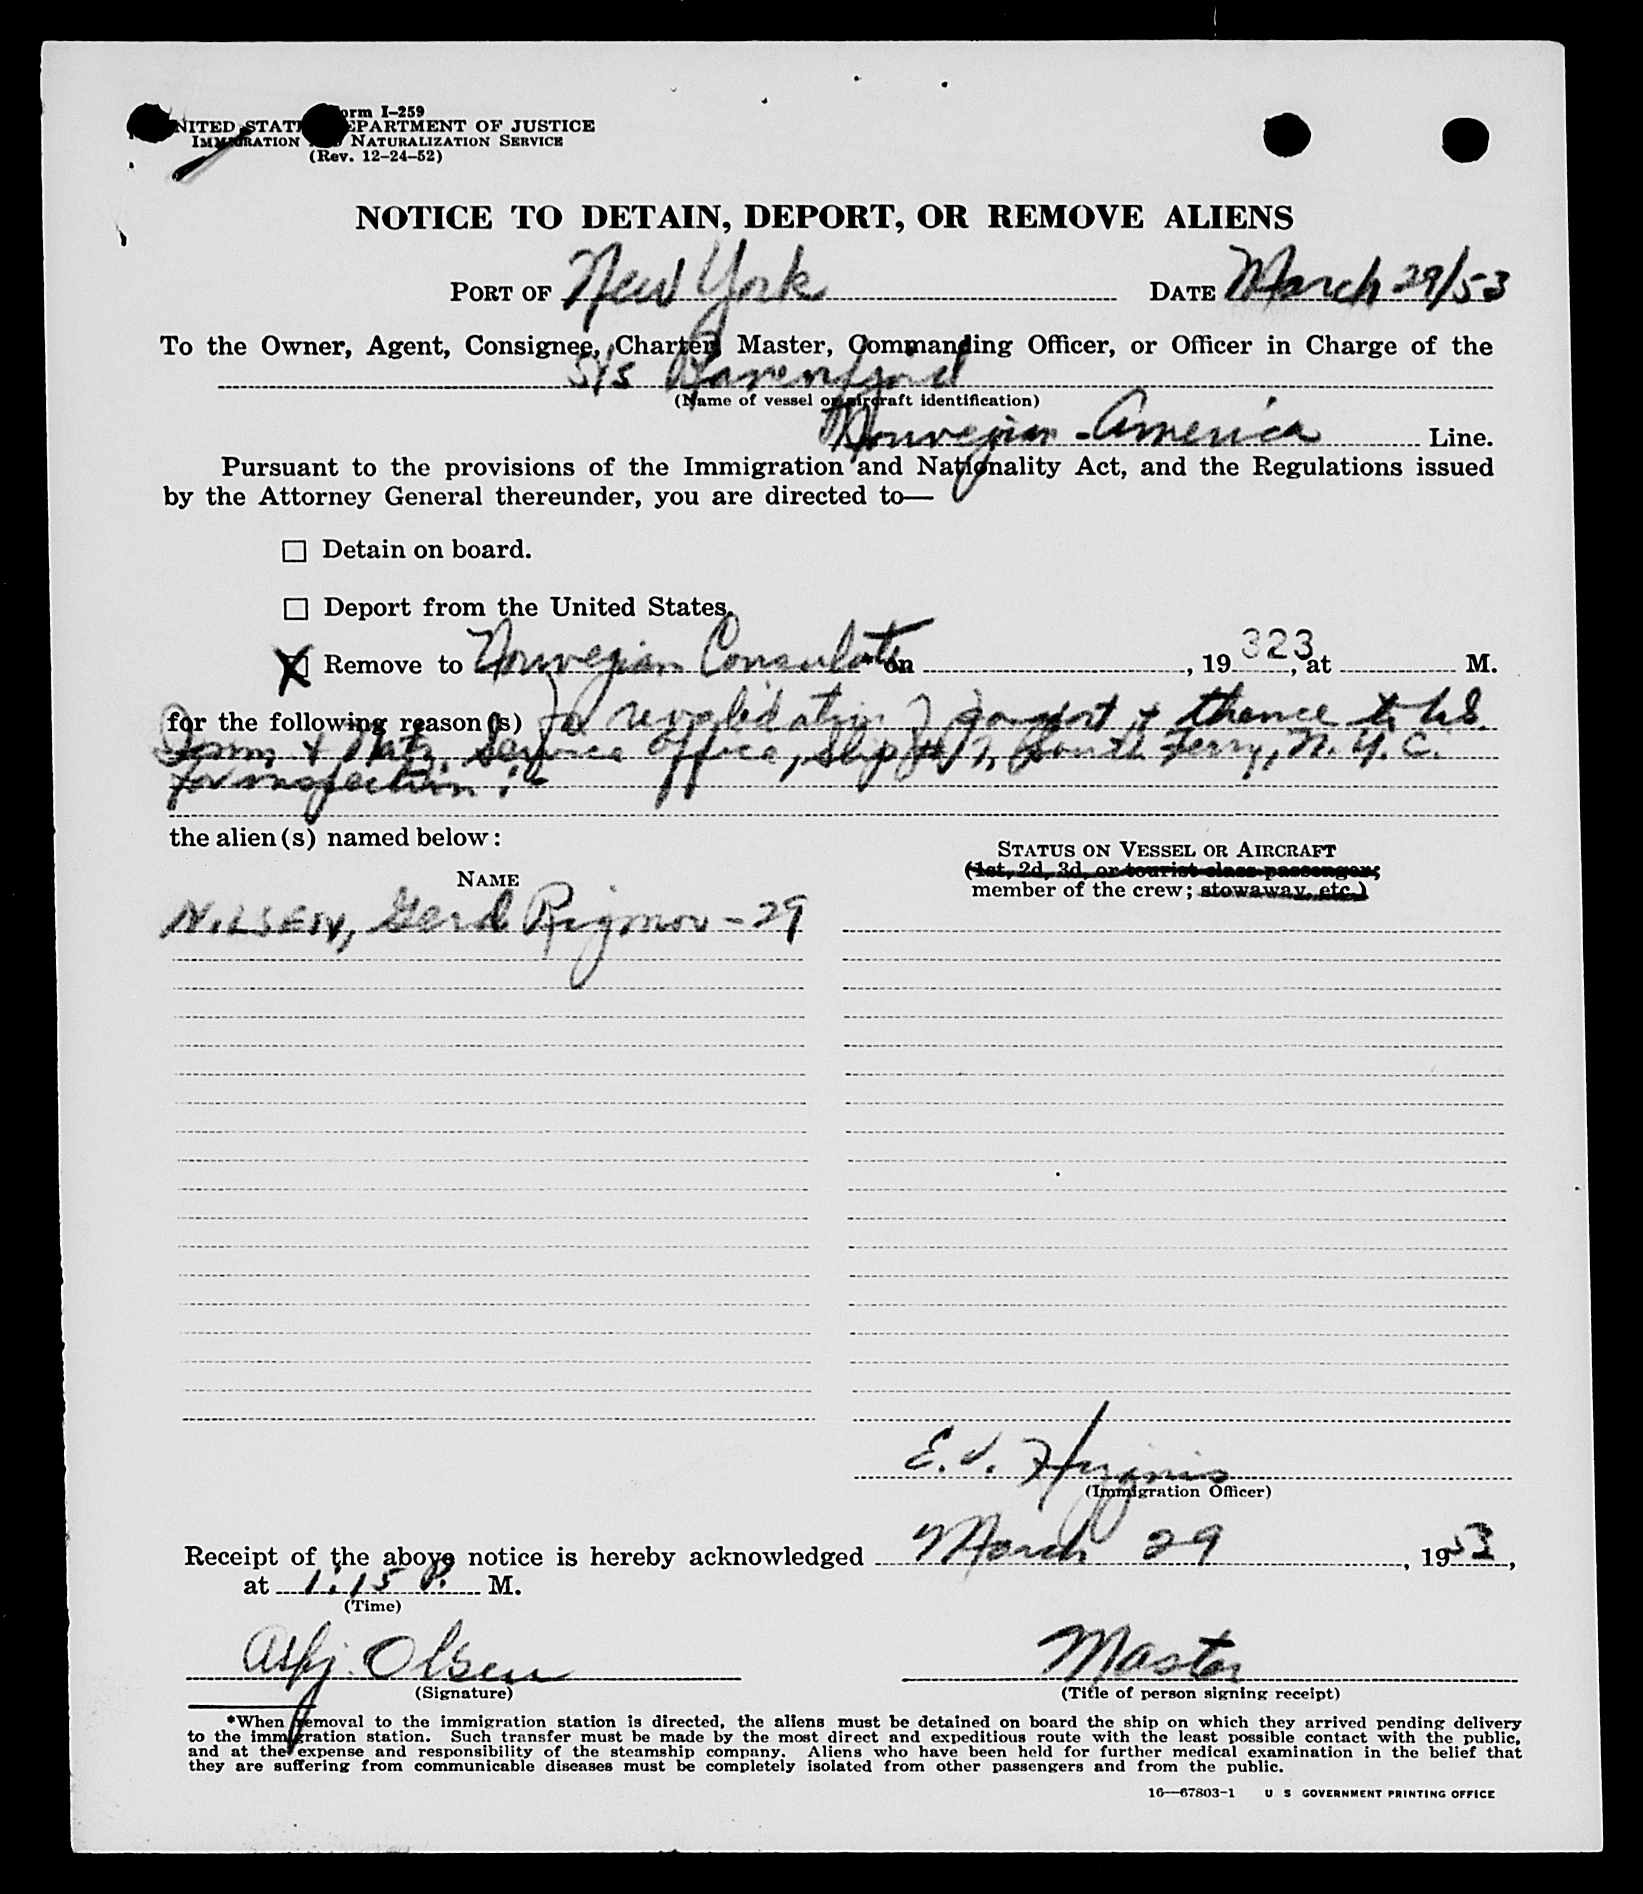 Form I-259
UNITED STATES DEPARTMENT OF JUSTICE
IMMIGRATION AND NATURALIZATION SERVICE
(Rev. 12-24-52)
NOTICE TO DETAIN, DEPORT, OR REMOVE ALIENS
PORT OF New York DATE March 29/53
To the Owner, Agent, Consignee, Charter, Master, Commanding Officer, or Officer in Charge of the
S/S
(Name of vessel or aircraft identification)
Norwegian-America Line.
Pursuant to the provisions of the Immigration and Nationality Act, and the Regulations issued
by the Attorney General thereunder, you are directed to—
☐ Detain on board.
☐ Deport from the United States.
☒ Remove to Norwegian Consulate *on , 19 323, at M.
for the following reason(s) for revalidation of passport & thence to U.S.
Imm. & Natz. Service Office, Slip South Ferry, N.Y.C.
for inspection:-
the alien(s) named below:
STATUS ON VESSEL OR AIRCRAFT
(1st, 2d, 3d, or tourist class passenger;
NAME
member of the crew; stowaway, etc.)
NILSEN, Gerd Rigmor - 29
E. J. Higgins
(Immigration Officer)
Receipt of the above notice is hereby acknowledged March 29, 1953,
at 1:15 P. M.
(Time)
Asbj. Olsen Master
(Signature) (Title of person signing receipt)
*When removal to the immigration station is directed, the aliens must be detained on board the ship on which they arrived pending delivery
to the immigration station. Such transfer must be made by the most direct and expeditious route with the least possible contact with the public,
and at the expense and responsibility of the steamship company. Aliens who have been held for further medical examination in the belief that
they are suffering from communicable diseases must be completely isolated from other passengers and from the public.
16—67803-1 U S GOVERNMENT PRINTING OFFICE